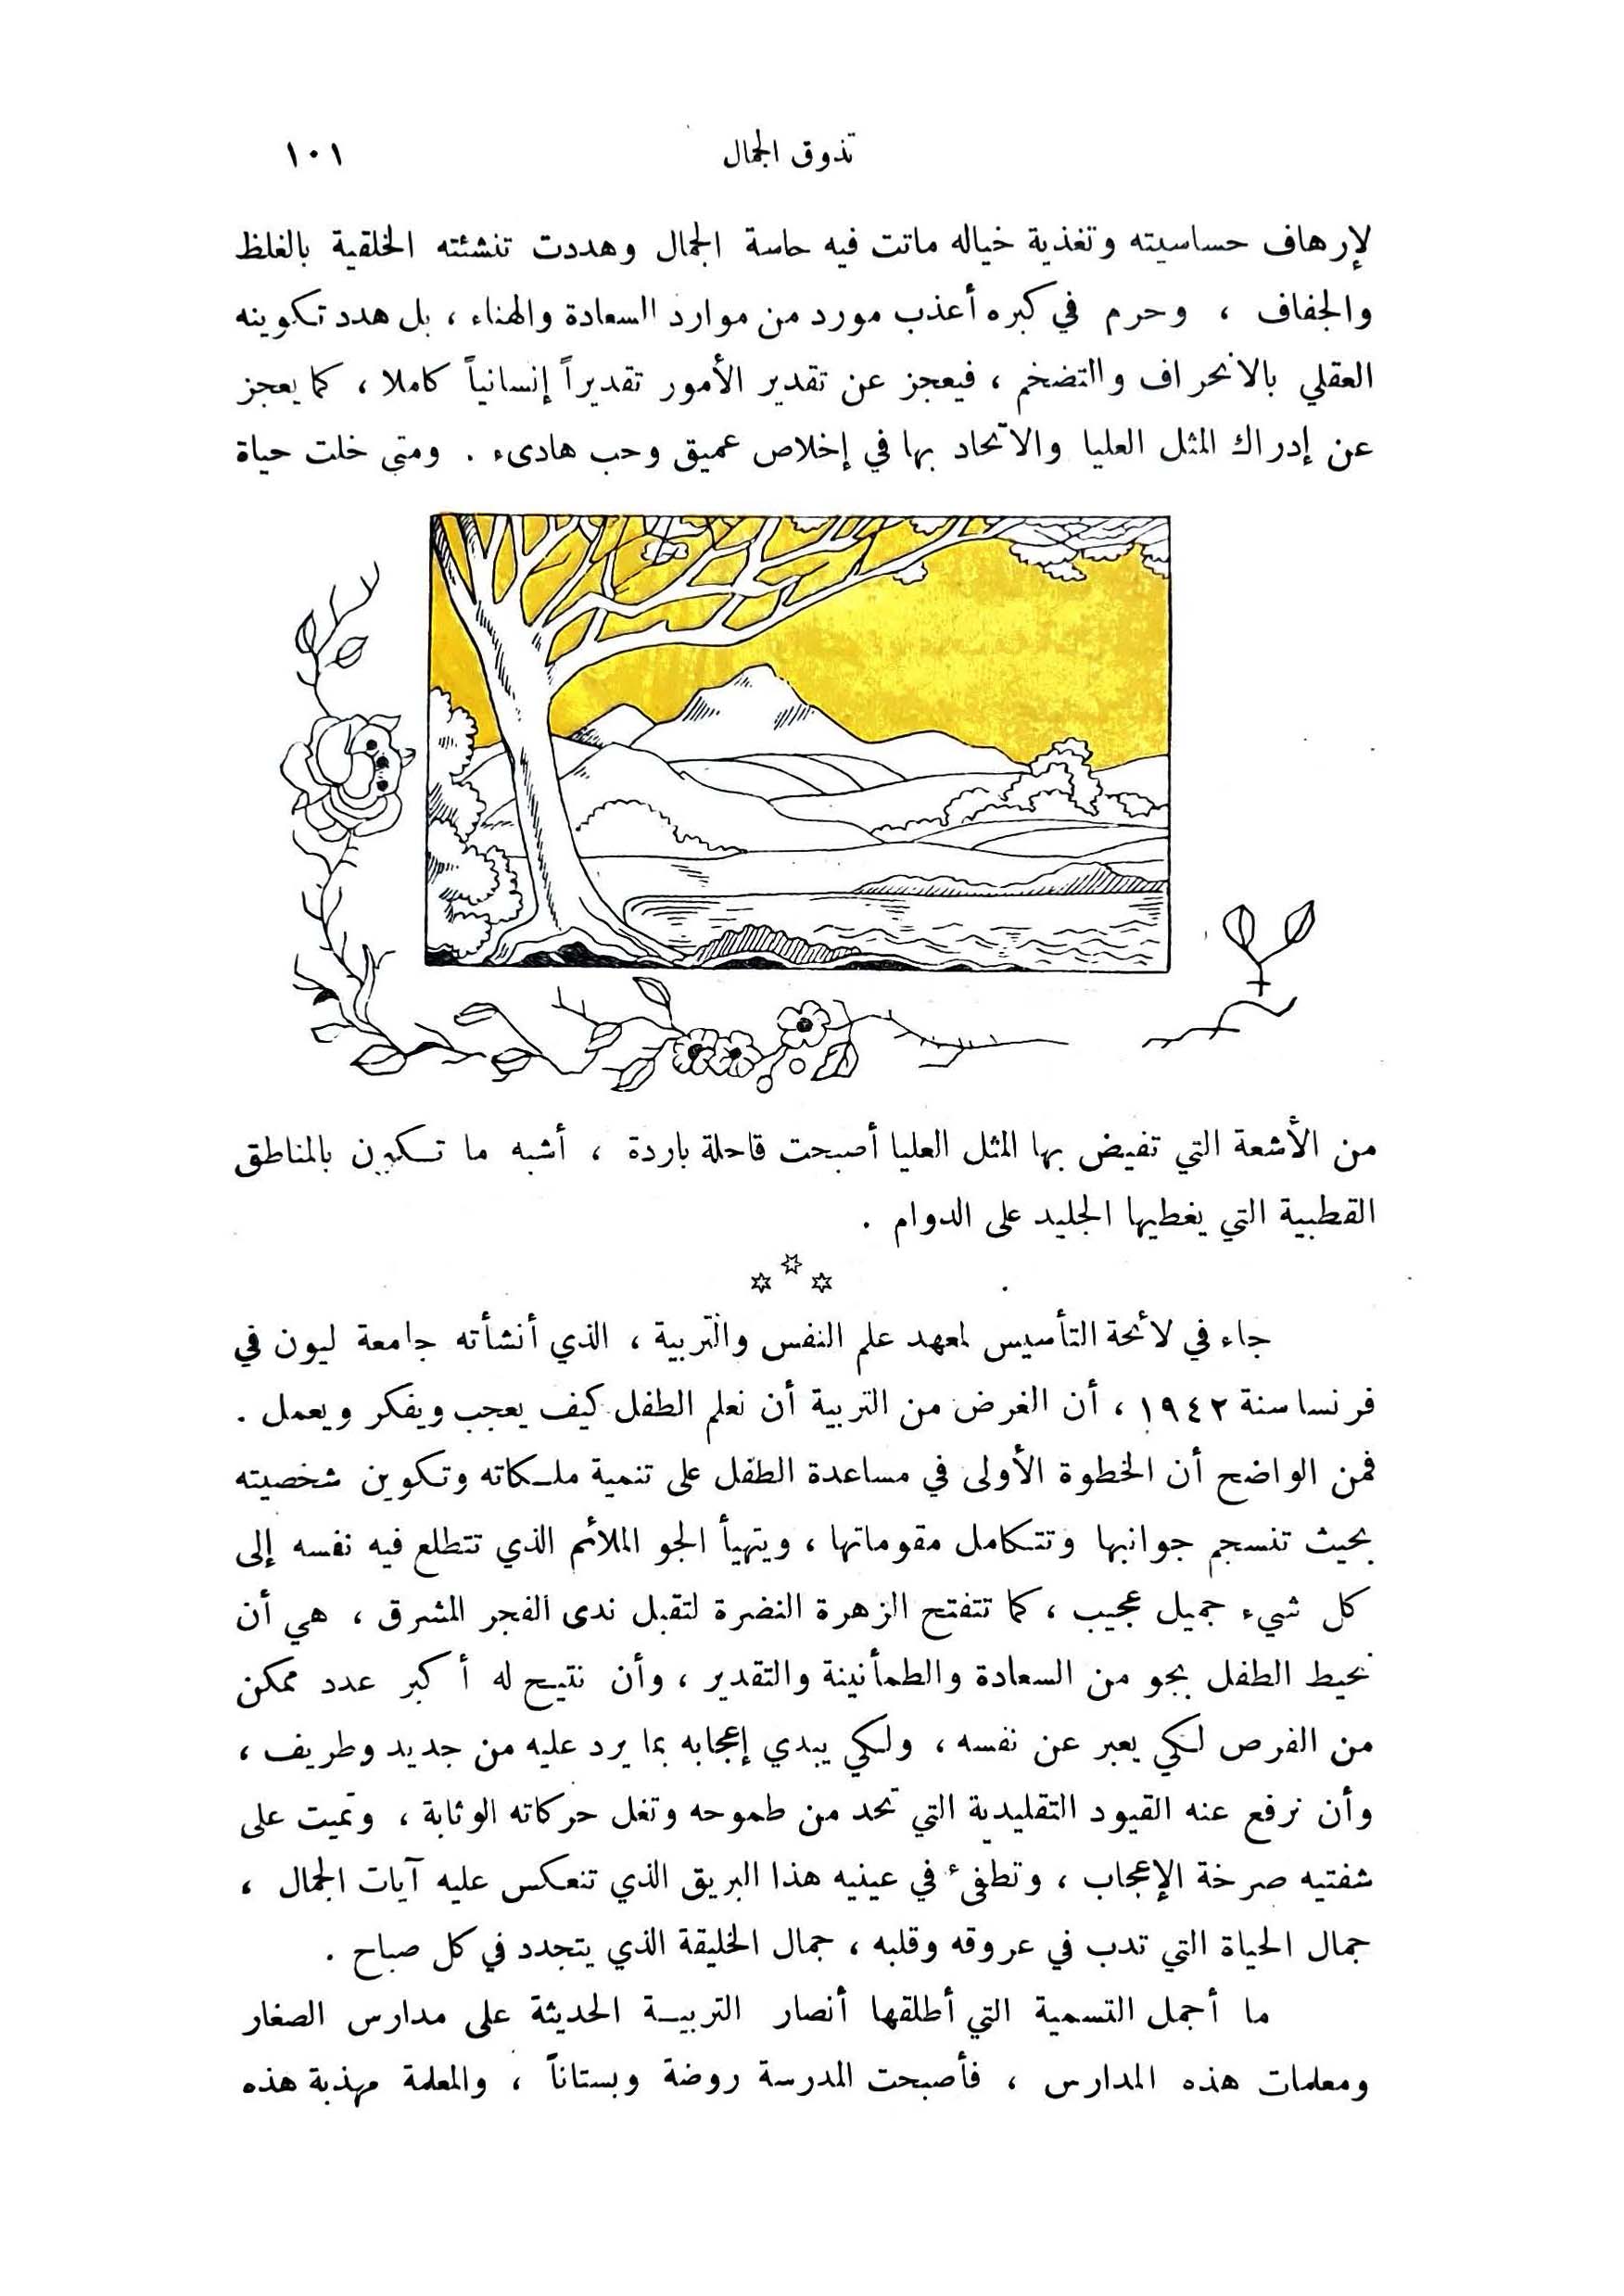 تذوق الجمال ١٠١
لإرهاف حساسيته وتغذية خياله ماتت فيه حاسة الجمال وهددت تنشئته الخلقية بالغلظ
والجفاف ، وحرم في كبره أعذب مورد من موارد السعادة والهناء ، بل هدد تكوينه
العقلي بالانحراف والتضخم ، فيعجز عن تقدير الأمور تقديراً إنسانياً كاملا ، كما يعجز
عن إدراك المثل العليا والاتحاد بها في إخلاص عميق وحب هادىء . ومتى خلت حياة
من الأشعة التي تفيض بها المثل العليا أصبحت قاحلة باردة ، أشبه ما تكون بالمناطق
القطبية التي يغطيها الجليد على الدوام .
جاء في لائحة التأسيس لمعهد علم النفس والتربية ، الذي أنشأته جامعة ليون في
فرنسا سنة ١٩٤٢ ، أن الغرض من التربية أن نعلم الطفل كيف يعجب ويفكر ويعمل .
فمن الواضح أن الخطوة الأولى في مساعدة الطفل على تنمية ملكاته وتكوين شخصيته
بحيث تنسجم جوانبها وتتكامل مقوماتها ، ويتهيأ الجو الملائم الذي تتطلع فيه نفسه إلى
كل شيء جميل عجيب ، كما تتفتح الزهرة النضرة لتقبل ندى الفجر المشرق ، هي أن
نحيط الطفل بجو من السعادة والطمأنينة والتقدير ، وأن نتيح له أكبر عدد ممكن
من الفرص لكي يعبر عن نفسه ، ولكي يبدي إعجابه بما يرد عليه من جديد وطريف ،
وأن نرفع عنه القيود التقليدية التي تحد من طموحه وتغل حركاته الوثابة ، وتميت على
شفتيه صرخة الإعجاب ، وتطفئ في عينيه هذا البريق الذي تنعكس عليه آيات الجمال ،
جمال الحياة التي تدب في عروقه وقلبه ، جمال الخليقة الذي يتجدد في كل صباح .
ما أجمل التسمية التي أطلقها أنصار التربية الحديثة على مدارس الصغار
ومعلمات هذه المدارس ، فأصبحت المدرسة روضة وبستاناً ، والمعلمة مهذبة هذه